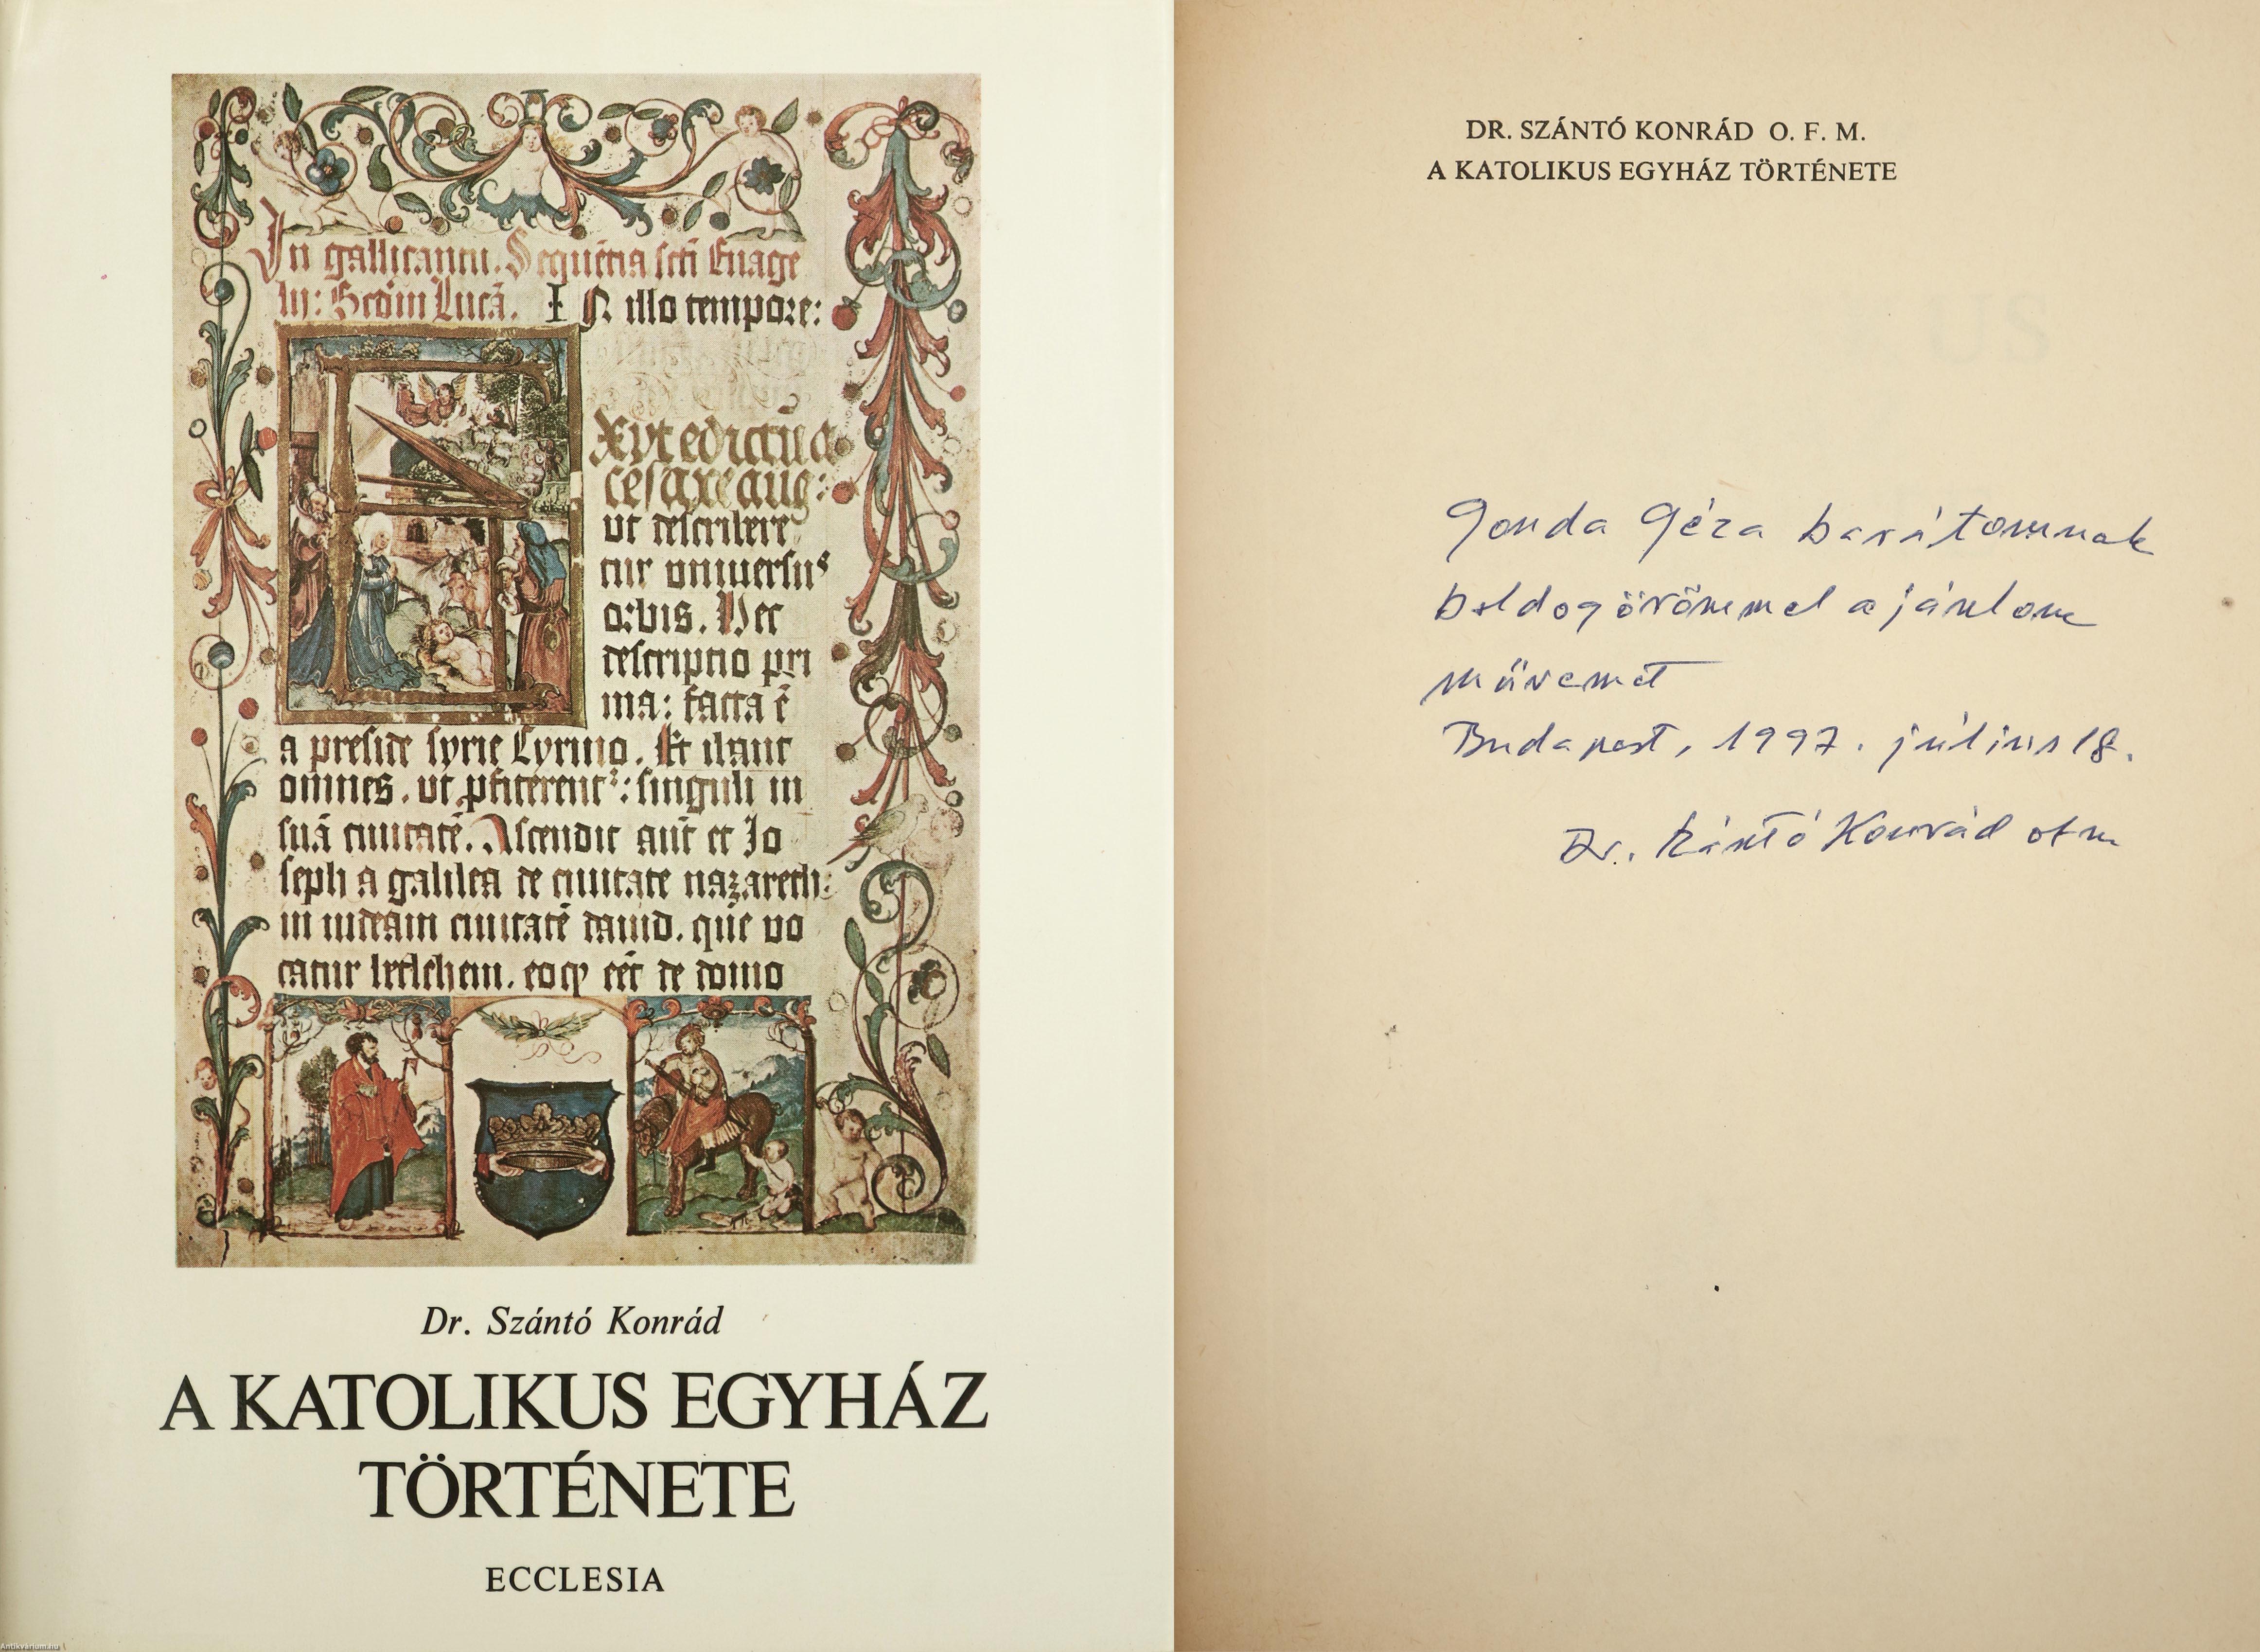 In gallicantu. Sequētia scti Euāge
lij: Scdm Lucā. IN illo tempore:
Exijt edictū a
cesare aug:
ut describere
tur uniuersus
orbis. Hec
descriptio pri
ma: facta ē
a preside syrie Cyrino. Et ibant
omnes. ut pfiterent: singuli in
suā ciuitatē. Ascendit aūt et Jo
seph a galilea de ciuitate nazareth:
in iudeam ciuitatē dauid. que uo
catur bethlehem. eo qp eēt de domo
Dr. Szántó Konrád
A KATOLIKUS EGYHÁZ
TÖRTÉNETE
ECCLESIA
Antikvárium.hu
DR. SZÁNTÓ KONRÁD O. F. M.
A KATOLIKUS EGYHÁZ TÖRTÉNETE
Gonda Géza barátomnak
boldog örömmel ajánlom
művemet
Budapest, 1997. július 18.
Dr. Szántó Konrád ofm